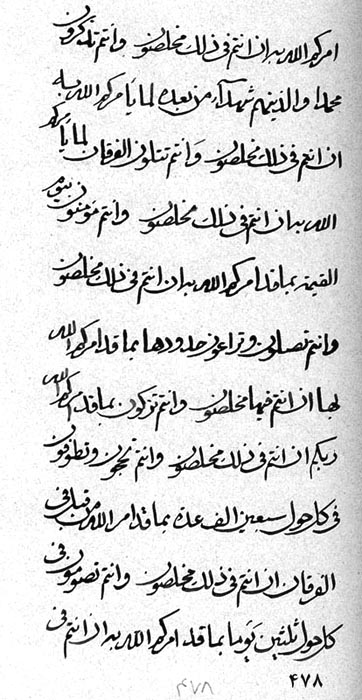 امركم الله به ان انتم فى ذلك مخلصون وانتم تذكرون
محمدا والذينهم شهدآء من بعده لما يأمركم الله به
ان انتم فى ذلك مخلصون وانتم تتلون الفرقان لما يأمركم
الله به ان انتم فى ذلك مخلصون وانتم مؤمنون بيوم
القيمة بما قد امركم الله به ان انتم فى ذلك مخلصون
وانتم تصلون وتراعون حدودها بما قد امركم الله
لها ان انتم فيها مخلصون وانتم تزكون بما قد امركم الله
ربكم ان انتم فى ذلك مخلصون وانتم تحجون وتطوفون
فى كل حول سبعين الف عدة بما قد امر الله من قبل فى
الفرقان ان انتم فى ذلك مخلصون وانتم تصومون فى
كل حول ثلثين يوما بما قد امركم الله به ان انتم فى
۴۷۸
۴۷۸